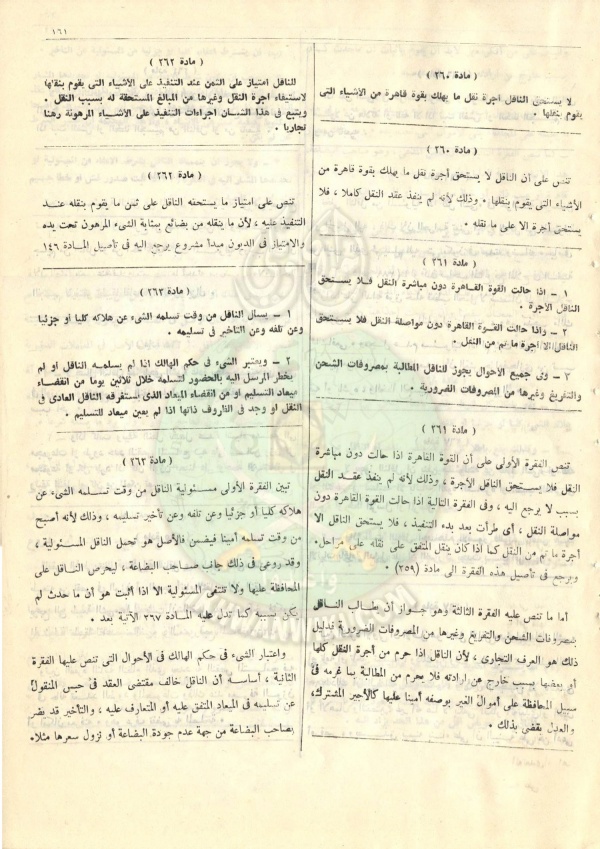 ١٦١
( مادة ٢٦٠ )
لا يستحق الناقل اجرة نقل ما يهلك بقوة قاهرة من الأشياء التى
يقوم بنقلها .
( مادة ٢٦٠ )
تنص على أن الناقل لا يستحق أجرة نقل ما يهلك بقوة قاهرة من
الأشياء التى يقوم بنقلها . وذلك لأنه لم ينفذ عقد النقل كاملا ، فلا
يستحق أجرة الا على ما نقله .
( مادة ٢٦١ )
١ – اذا حالت القوة القاهرة دون مباشرة النقل فلا يستحق
الناقل الأجرة .
٢ – واذا حالت القوة القاهرة دون مواصلة النقل فلا يستحق
الناقل الا أجرة ما تم من النقل .
٣ – وفى جميع الأحوال يجوز للناقل المطالبة بمصروفات الشحن
والتفريغ وغيرها من المصروفات الضرورية .
( مادة ٢٦١ )
تنص الفقرة الأولى على أن القوة القاهرة اذا حالت دون مباشرة
النقل فلا يستحق الناقل الأجرة ، وذلك لأنه لم ينفذ عقد النقل
بسبب لا يرجع اليه ، وفى الفقرة التالية اذا حالت القوة القاهرة دون
مواصلة النقل ، أى طرأت بعد بدء التنفيذ ، فلا يستحق الناقل الا
أجرة ما تم من النقل كما اذا كان ينقل المتفق على نقله على مراحل.
ويرجع فى تأصيل هذه الفقرة الى مادة (٢٥٩)
أما ما تنص عليه الفقرة الثالثة وهو جواز أن يطالب الناقل
بمصروفات الشحن والتفريغ وغيرها من المصروفات الضرورية فدليل
ذلك هو العرف التجارى ، لأن الناقل اذا حرم من أجرة النقل كلها
أو بعضها بسبب خارج عن ارادته فلا يحرم من المطالبة بما غرمه فى
سبيل المحافظة على أموال الغير بوصفه أمينا عليها كالأجير المشترك،
والعدل يقضى بذلك .
( مادة ٢٦٢ )
للناقل امتياز على الثمن عند التنفيذ على الأشياء التى يقوم بنقلها
لاستيفاء اجرة النقل وغيرها من المبالغ المستحقة له بسبب النقل .
ويتبع فى هذا الشأن اجراءات التنفيذ على الأشياء المرهونة رهنا
تجاريا .
( مادة ٢٦٢ )
تنص على امتياز ما يستحقه الناقل على ثمن ما يقوم بنقله عند
التنفيذ عليه ، لأن ما ينقله من بضائع بمثابة الشىء المرهون تحت يده
والامتياز فى الديون مبدأ مشروع يرجع اليه فى تأصيل المادة ١٤٦
( مادة ٢٦٣ )
١ – يسأل الناقل من وقت تسلمه الشىء عن هلاكه كليا او جزئيا
وعن تلفه وعن التأخير فى تسليمه .
٢ – ويعتبر الشىء فى حكم الهالك اذا لم يسلمه الناقل او لم
يخطر المرسل اليه بالحضور لتسلمه خلال ثلاثين يوما من انقضاء
ميعاد التسليم او من انقضاء الميعاد الذى يستغرقه الناقل العادى فى
النقل او وجد فى الظروف ذاتها اذا لم يعين ميعاد للتسليم .
( مادة ٢٦٣ )
تبين الفقرة الأولى مسئولية الناقل من وقت تسلمه الشىء عن
هلاكه كليا أو جزئيا وعن تلفه وعن تأخير تسليمه ، وذلك لأنه أصبح
من وقت تسلمه أمينا فيضمن فالأصل هو تحمل الناقل المسئولية ،
وقد روعى فى ذلك جانب صاحب البضاعة ، ليحرص الناقل على
المحافظة عليها ولا تنتفى المسئولية الا اذا أثبت هو أن ما حدث لم
يكن تسببه كما تدل عليه المادة ٢٦٧ الآتية بعد .
واعتبار الشىء فى حكم الهالك فى الأحوال التى تنص عليها الفقرة
الثانية ، أساسه أن الناقل خالف مقتضى العقد فى حبس المنقول
عن تسليمه فى الميعاد المتفق عليه أو المتعارف عليه ، والتأخير قد يضر
بصاحب البضاعة من جهة عدم جودة البضاعة أو نزول سعرها مثلا.